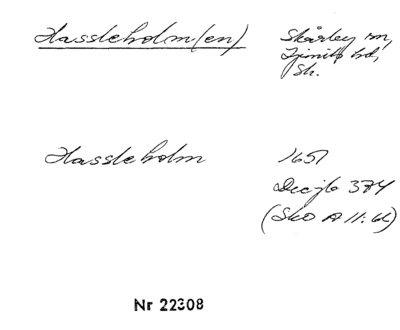 Hassleholm(en) Skårby sn,
Ljunits hd,
Sk.
Hassleholm 1651
Decjb 374
(SkO A II:6b)
Nr 22308